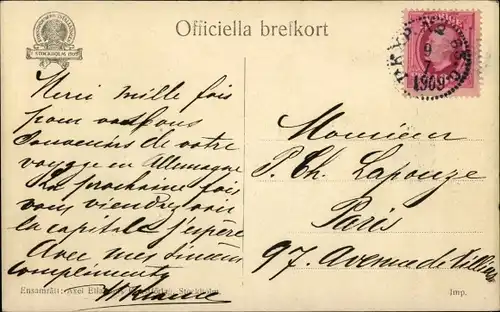 Officiella brefkort
STOCKHOLM 1909
PKXP. Nº
9
7
1909
Merci mille fois
pour vos bons
Souvenirs de votre
voyage en Allemagne
La prochaine fois
vous viendrez voir
la capitale j'espère
Avec mes sincères
compliments
Monsieur
P. Ch. Lapouze
Paris
97. Avenue de Villiers
Ensamrätt: Axel Stockholm.
Imp.